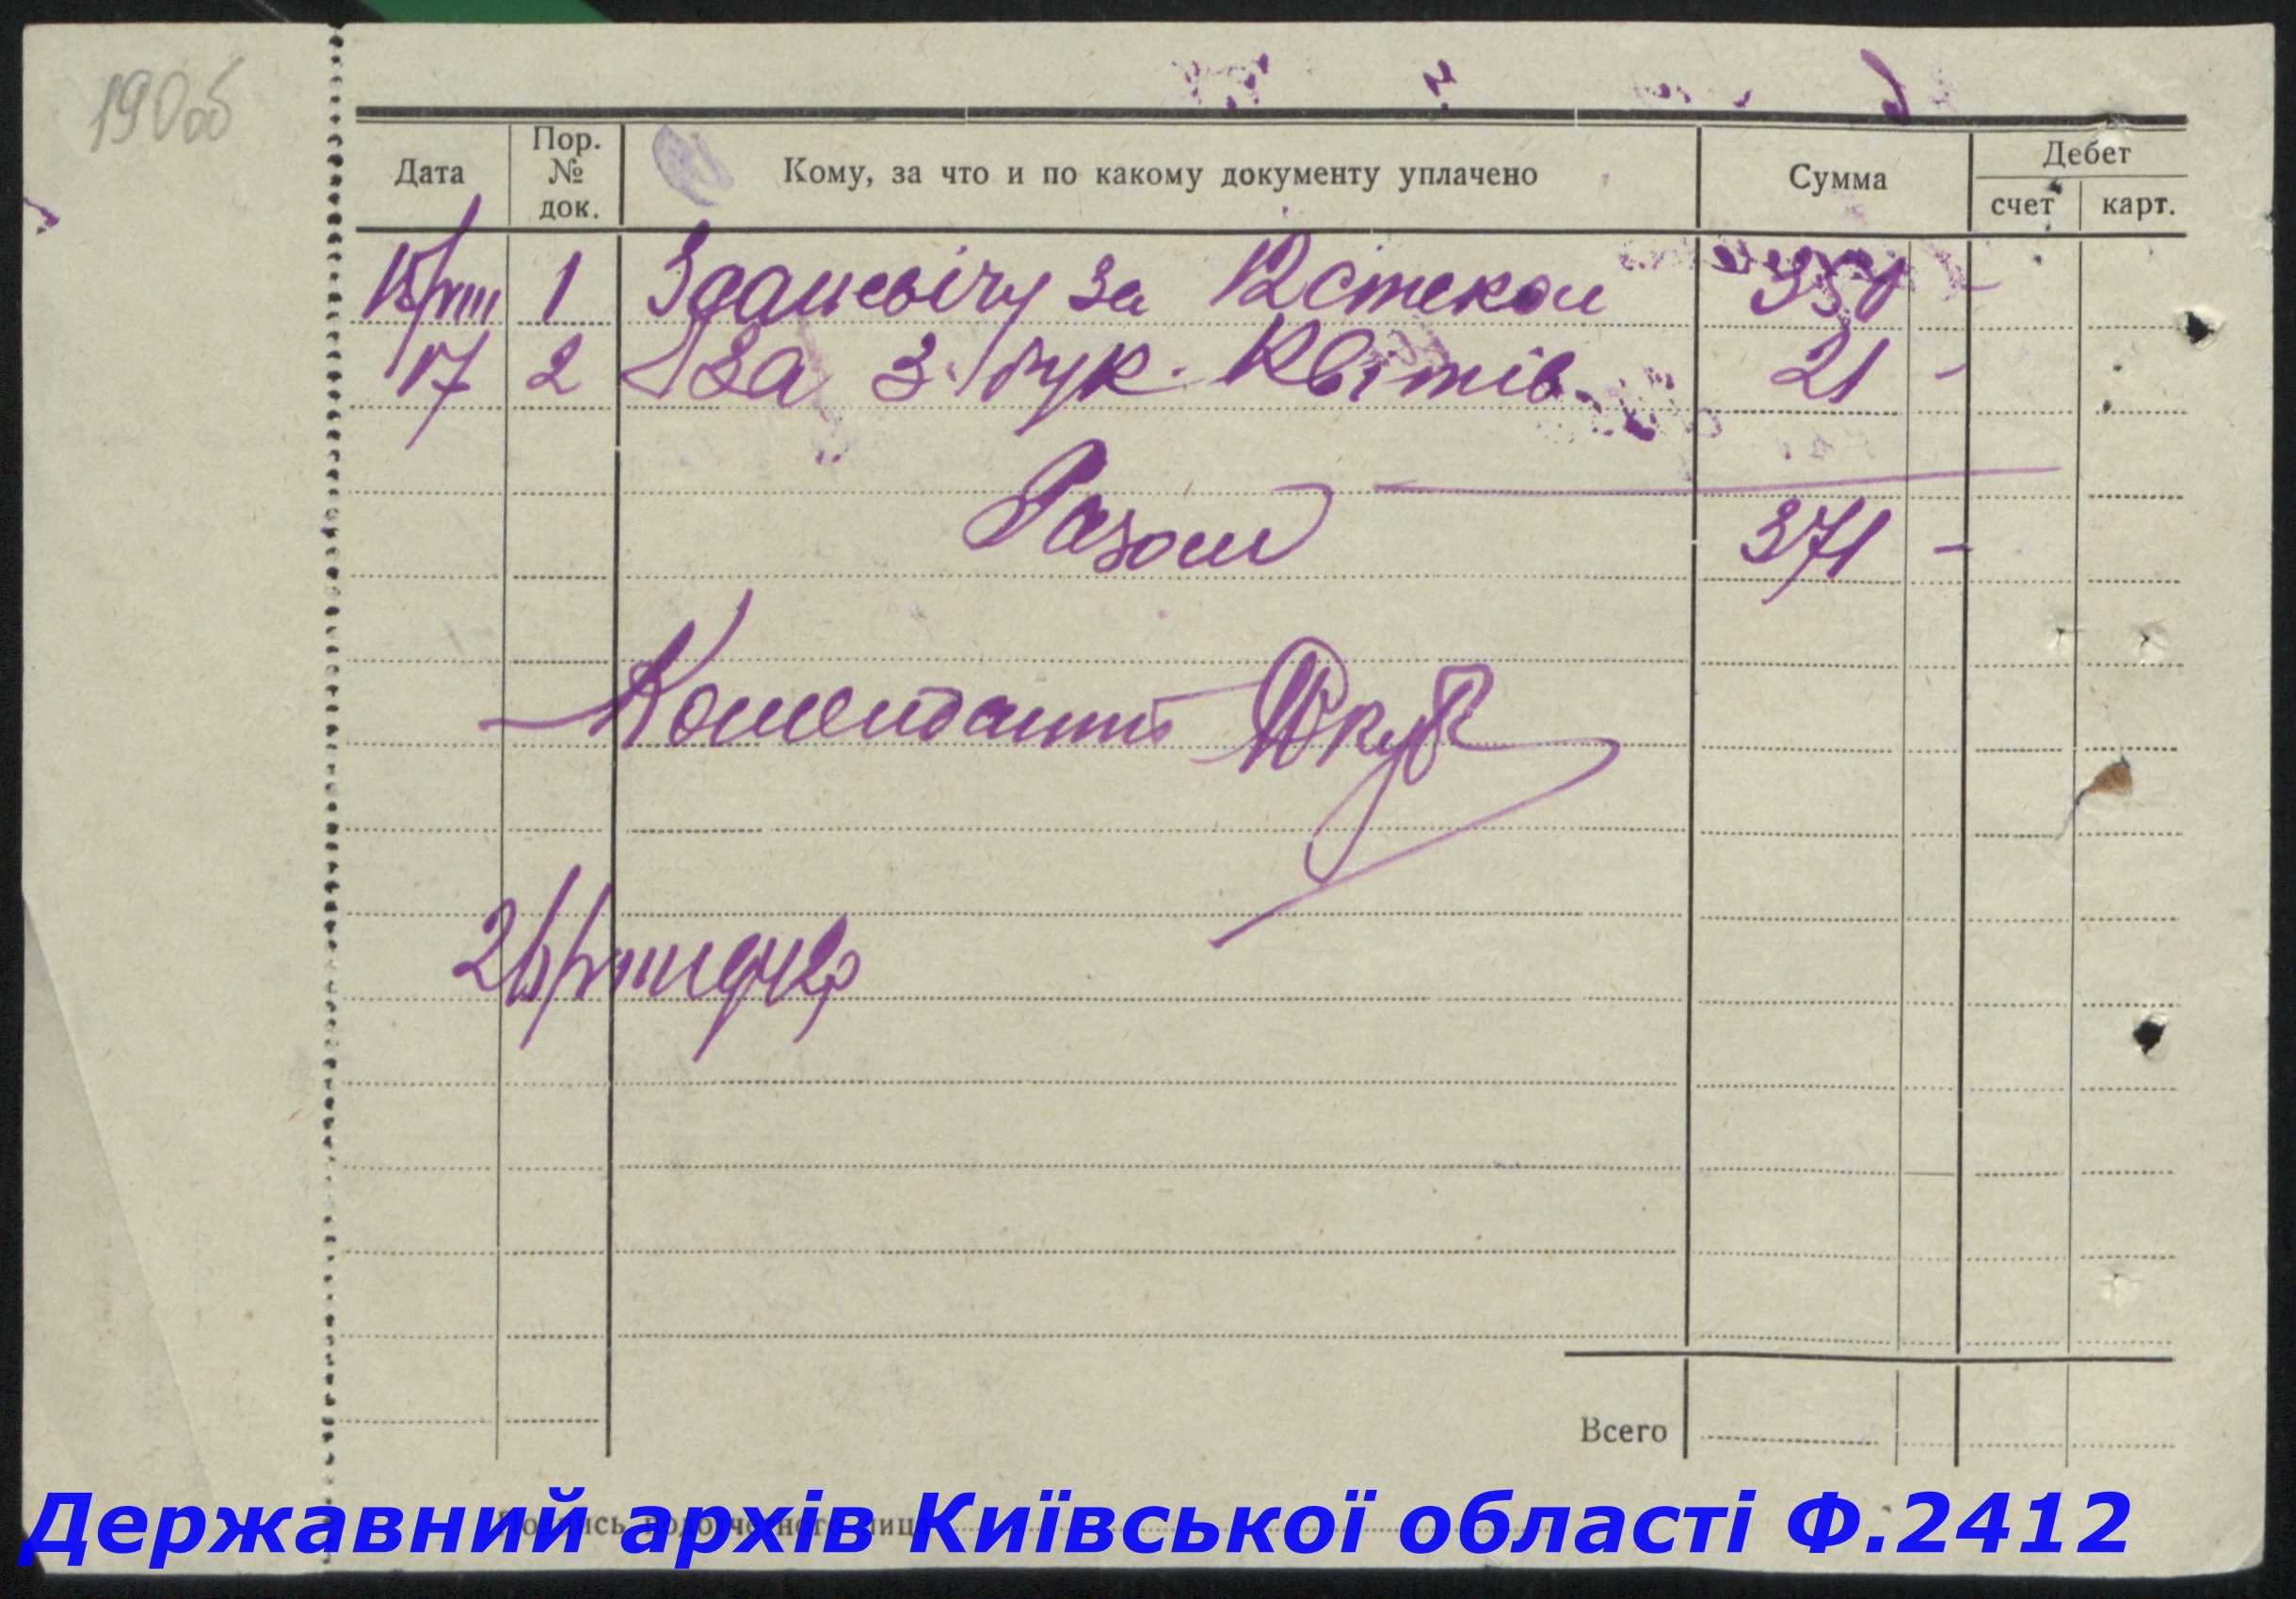 190об
Дата
Пор. № док.
Кому, за что и по какому документу уплачено
Сумма
Дебет
счет
карт.
15/VIII 1 Зданевічу за 12 стекол 350 -
17 2 За 3 бук. квітів. 21 -
Разом 371 -
Комендант
26/VIII 1942р
Всего
Подпись подотчетного лица
Державний архів Київської області Ф.2412